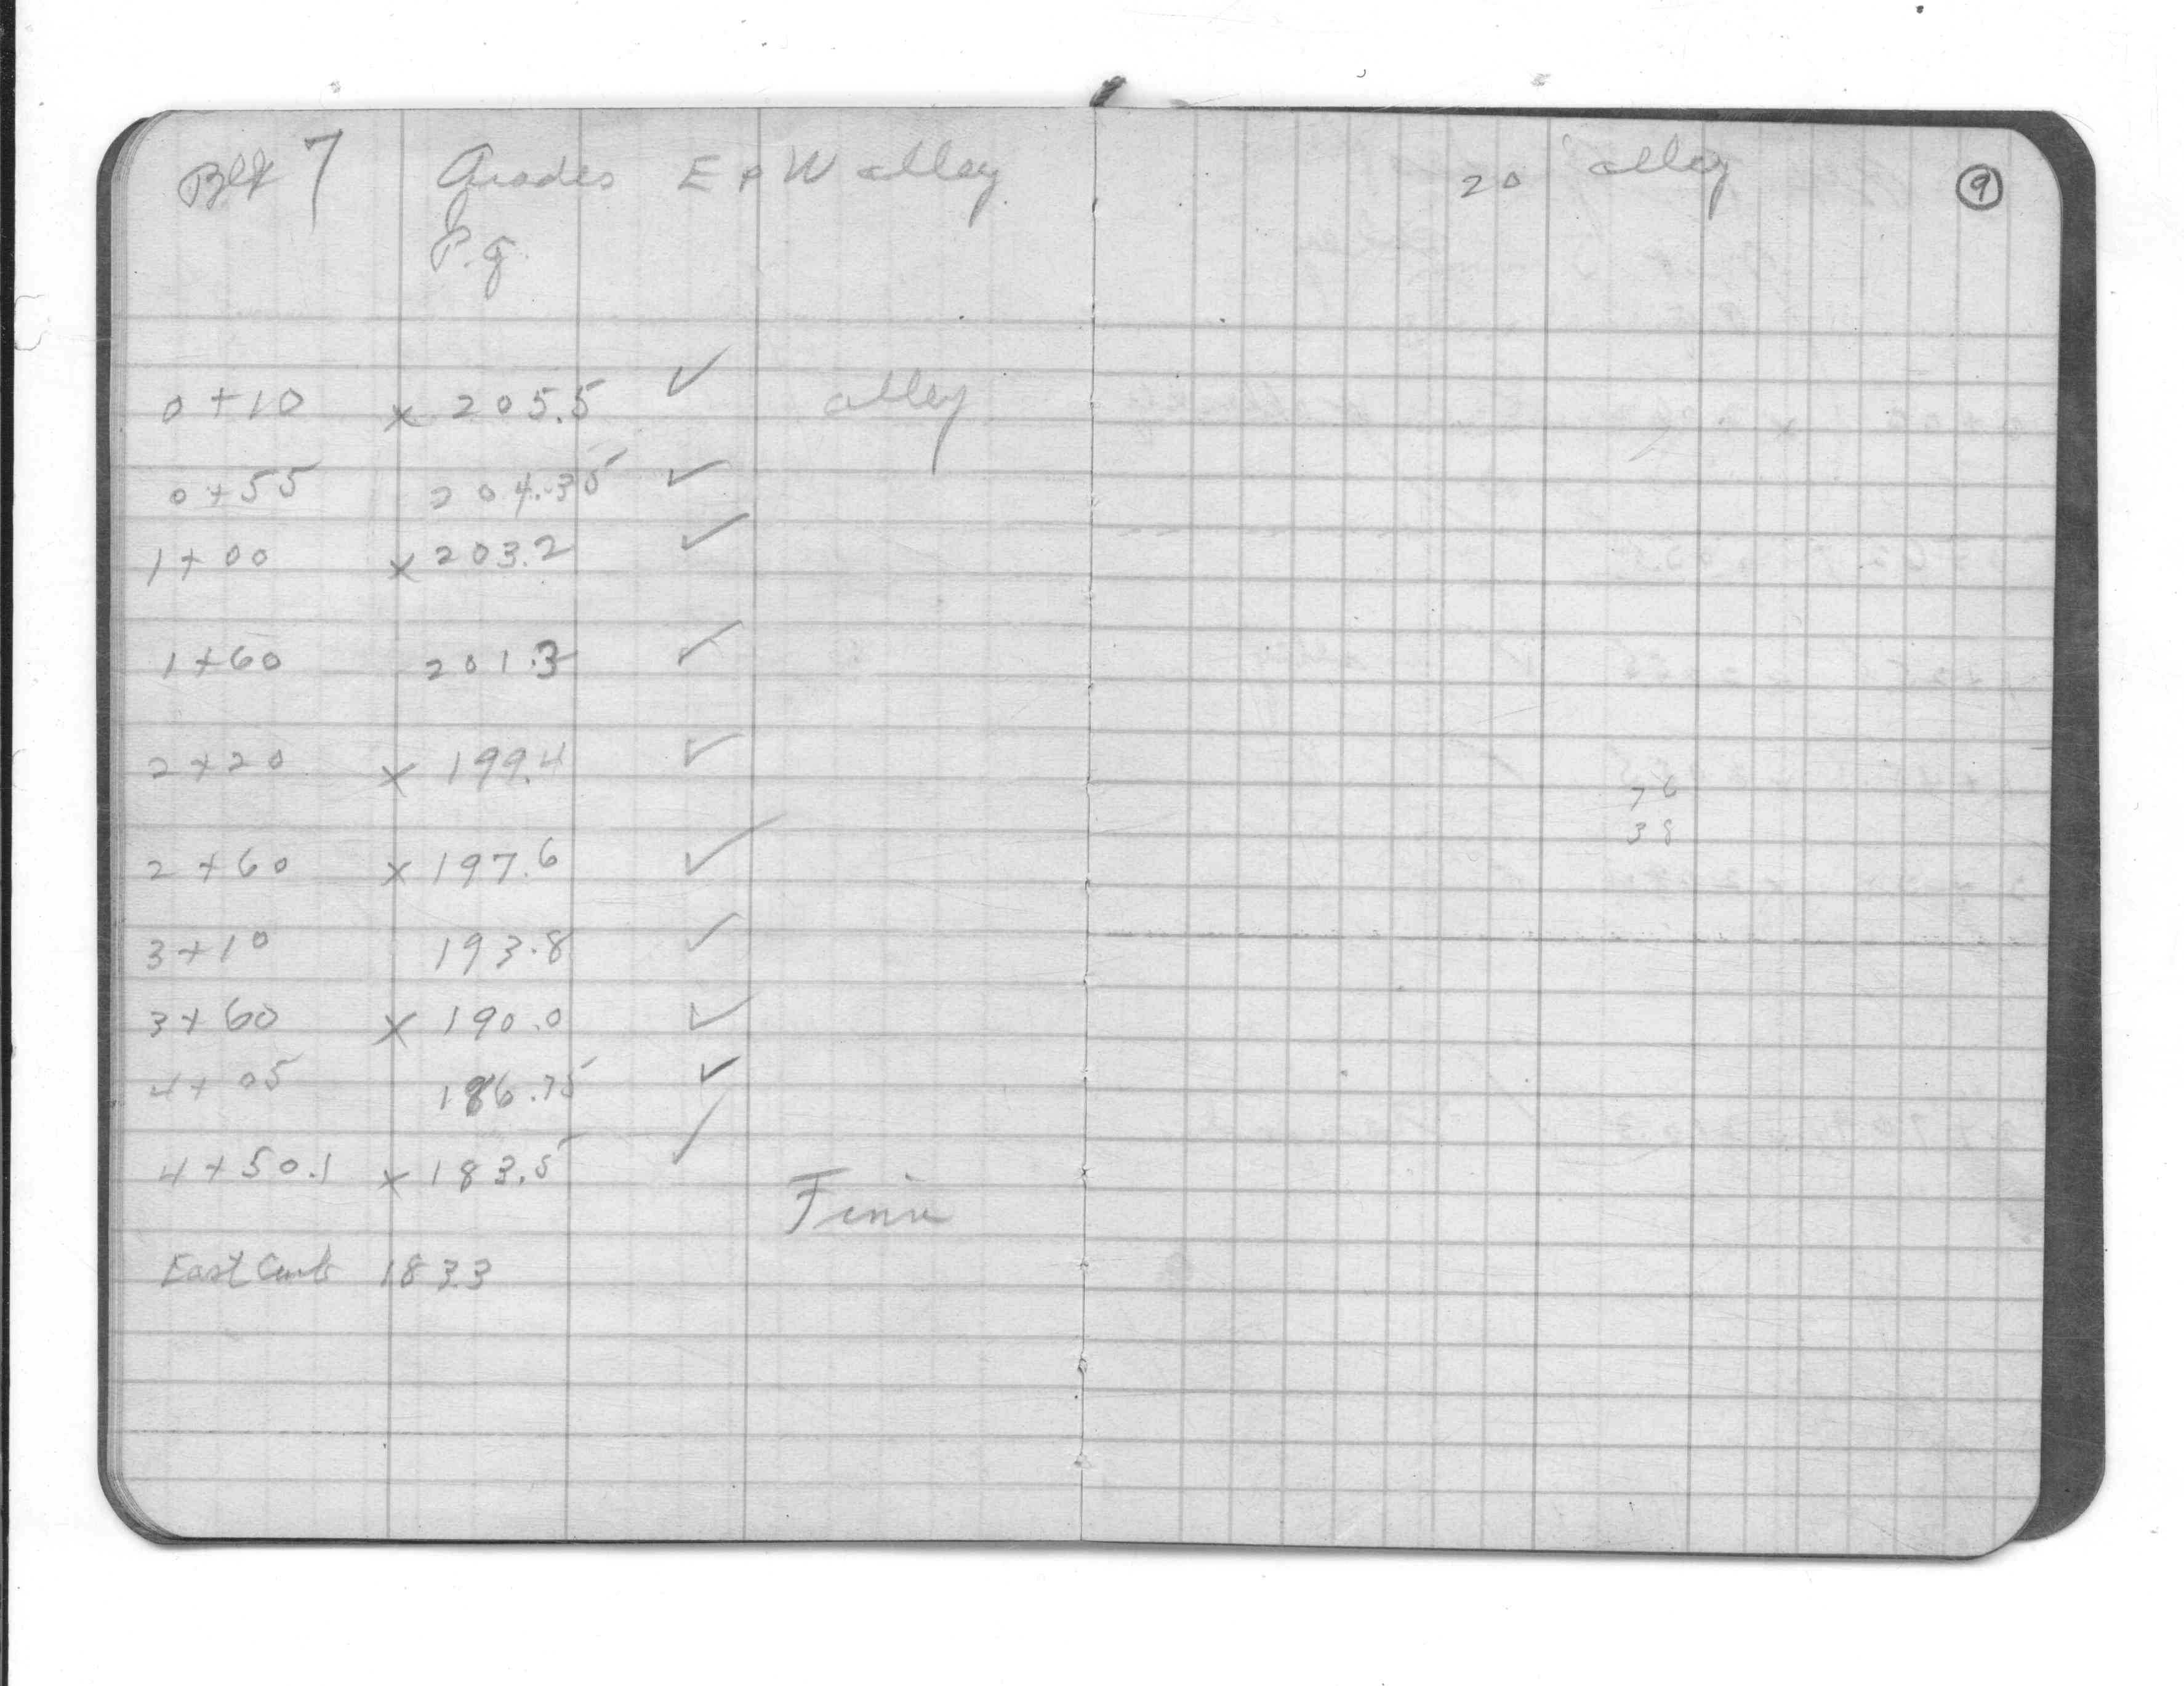 Blk 7 Grades E & W alley
P.g.
0+10 x 205.5 ✓ alley
0+55 204.35 ✓
1+00 x 203.2 ✓
1+60 201.3 ✓
2+20 x 199.4 ✓
2+60 x 197.6 ✓
3+10 193.8 ✓
3+60 x 190.0 ✓
4+05 186.75 ✓
4+50.1 x 183.5 ✓
East Curb 183.3
20 alley 9
76
38